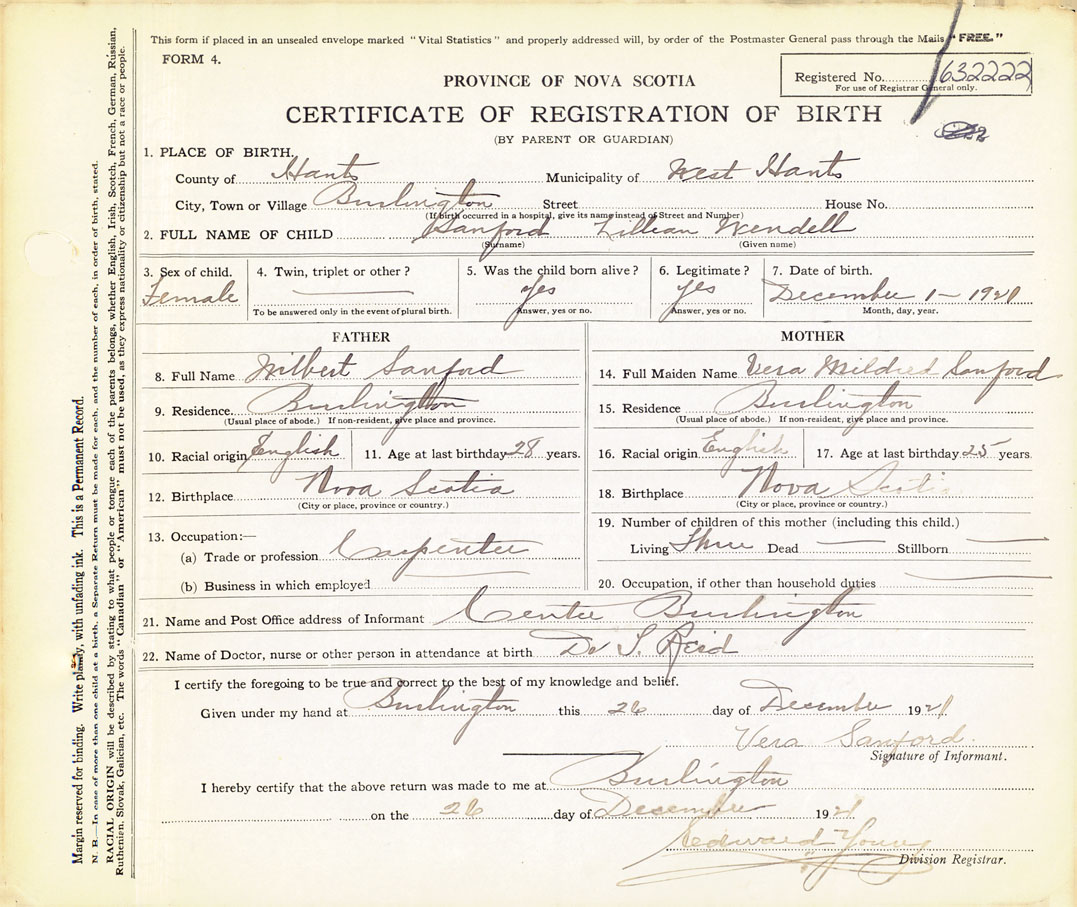 This form if placed in an unsealed envelope marked "Vital Statistics" and properly addressed will, by order of the Postmaster General pass through the Mails "FREE."
FORM 4.
Registered No. 632222
For use of Registrar General only.
PROVINCE OF NOVA SCOTIA
CERTIFICATE OF REGISTRATION OF BIRTH
(BY PARENT OR GUARDIAN)
1. PLACE OF BIRTH.
County of Hants Municipality of West Hants
City, Town or Village Burlington Street House No.
(If birth occurred in a hospital, give its name instead of Street and Number)
2. FULL NAME OF CHILD Sanford Lillian Wendell
(Surname) (Given name)
3. Sex of child. 4. Twin, triplet or other? 5. Was the child born alive? 6. Legitimate? 7. Date of birth.
Female yes yes December 1 - 1921
To be answered only in the event of plural birth. Answer, yes or no. Answer, yes or no. Month, day, year.
FATHER MOTHER
8. Full Name Wilbert Sanford 14. Full Maiden Name Vera Mildred Sanford
9. Residence Burlington 15. Residence Burlington
(Usual place of abode.) If non-resident, give place and province. (Usual place of abode.) If non-resident, give place and province.
10. Racial origin English 11. Age at last birthday 28 years. 16. Racial origin English 17. Age at last birthday 25 years.
12. Birthplace Nova Scotia 18. Birthplace Nova Scoti
(City or place, province or country.) (City or place, province or country.)
13. Occupation:— 19. Number of children of this mother (including this child.)
(a) Trade or profession Carpenter Living Three Dead Stillborn
(b) Business in which employed 20. Occupation, if other than household duties
21. Name and Post Office address of Informant Centre Burlington
22. Name of Doctor, nurse or other person in attendance at birth Dr Reid
I certify the foregoing to be true and correct to the best of my knowledge and belief.
Given under my hand at Burlington this 26 day of December 1921
Vera Sanford.
Signature of Informant.
I hereby certify that the above return was made to me at Burlington
on the 26 day of December 1921
Edward Young
Division Registrar.
Margin reserved for binding. Write plainly, with unfading ink. This is a Permanent Record.
N. B.—In case of more than one child at a birth, a Separate Return must be made for each, and the number of each, in order of birth, stated.
RACIAL ORIGIN will be described by stating to what people or tongue each of the parents belongs, whether English, Irish, Scotch, French, German, Russian,
Ruthenian, Slovak, Galician, etc. The words "Canadian" or "American" must not be used, as they express nationality or citizenship but not a race or people.